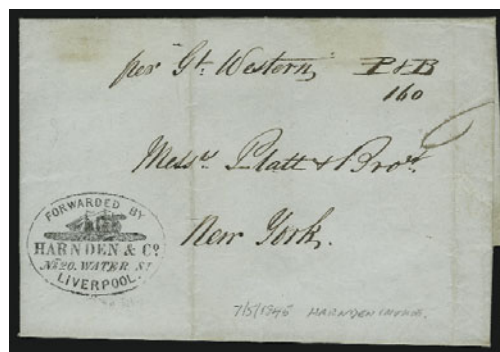 per "Gt. Western" P & B
160
Messrs. Platt & Bros.
New York.
FORWARDED BY
HARNDEN & Co.
No. 20. WATER ST.
LIVERPOOL.
7/5/1846 HARNDEN